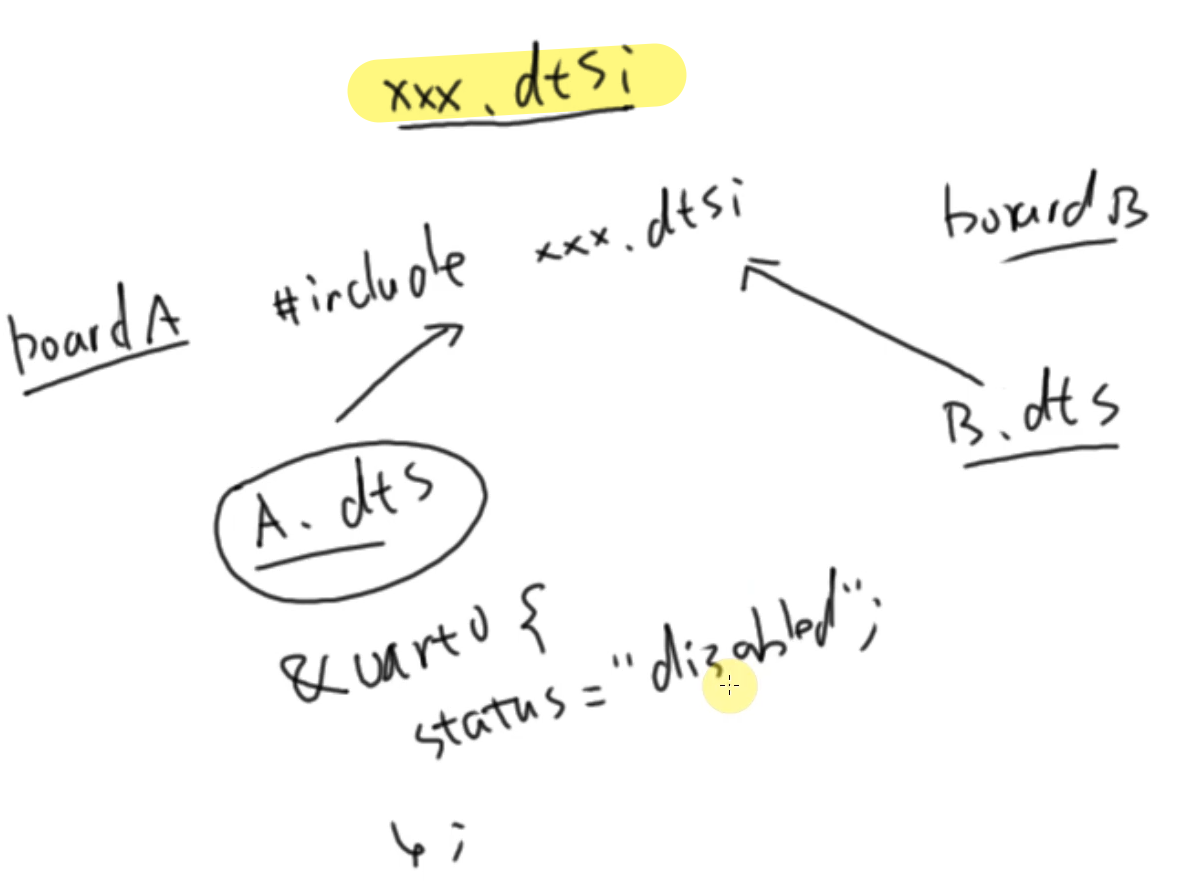 xxx.dtsi
#include xxx.dtsi
boardA
boardB
A.dts
B.dts
&uart0 {
status = "disabled";
};